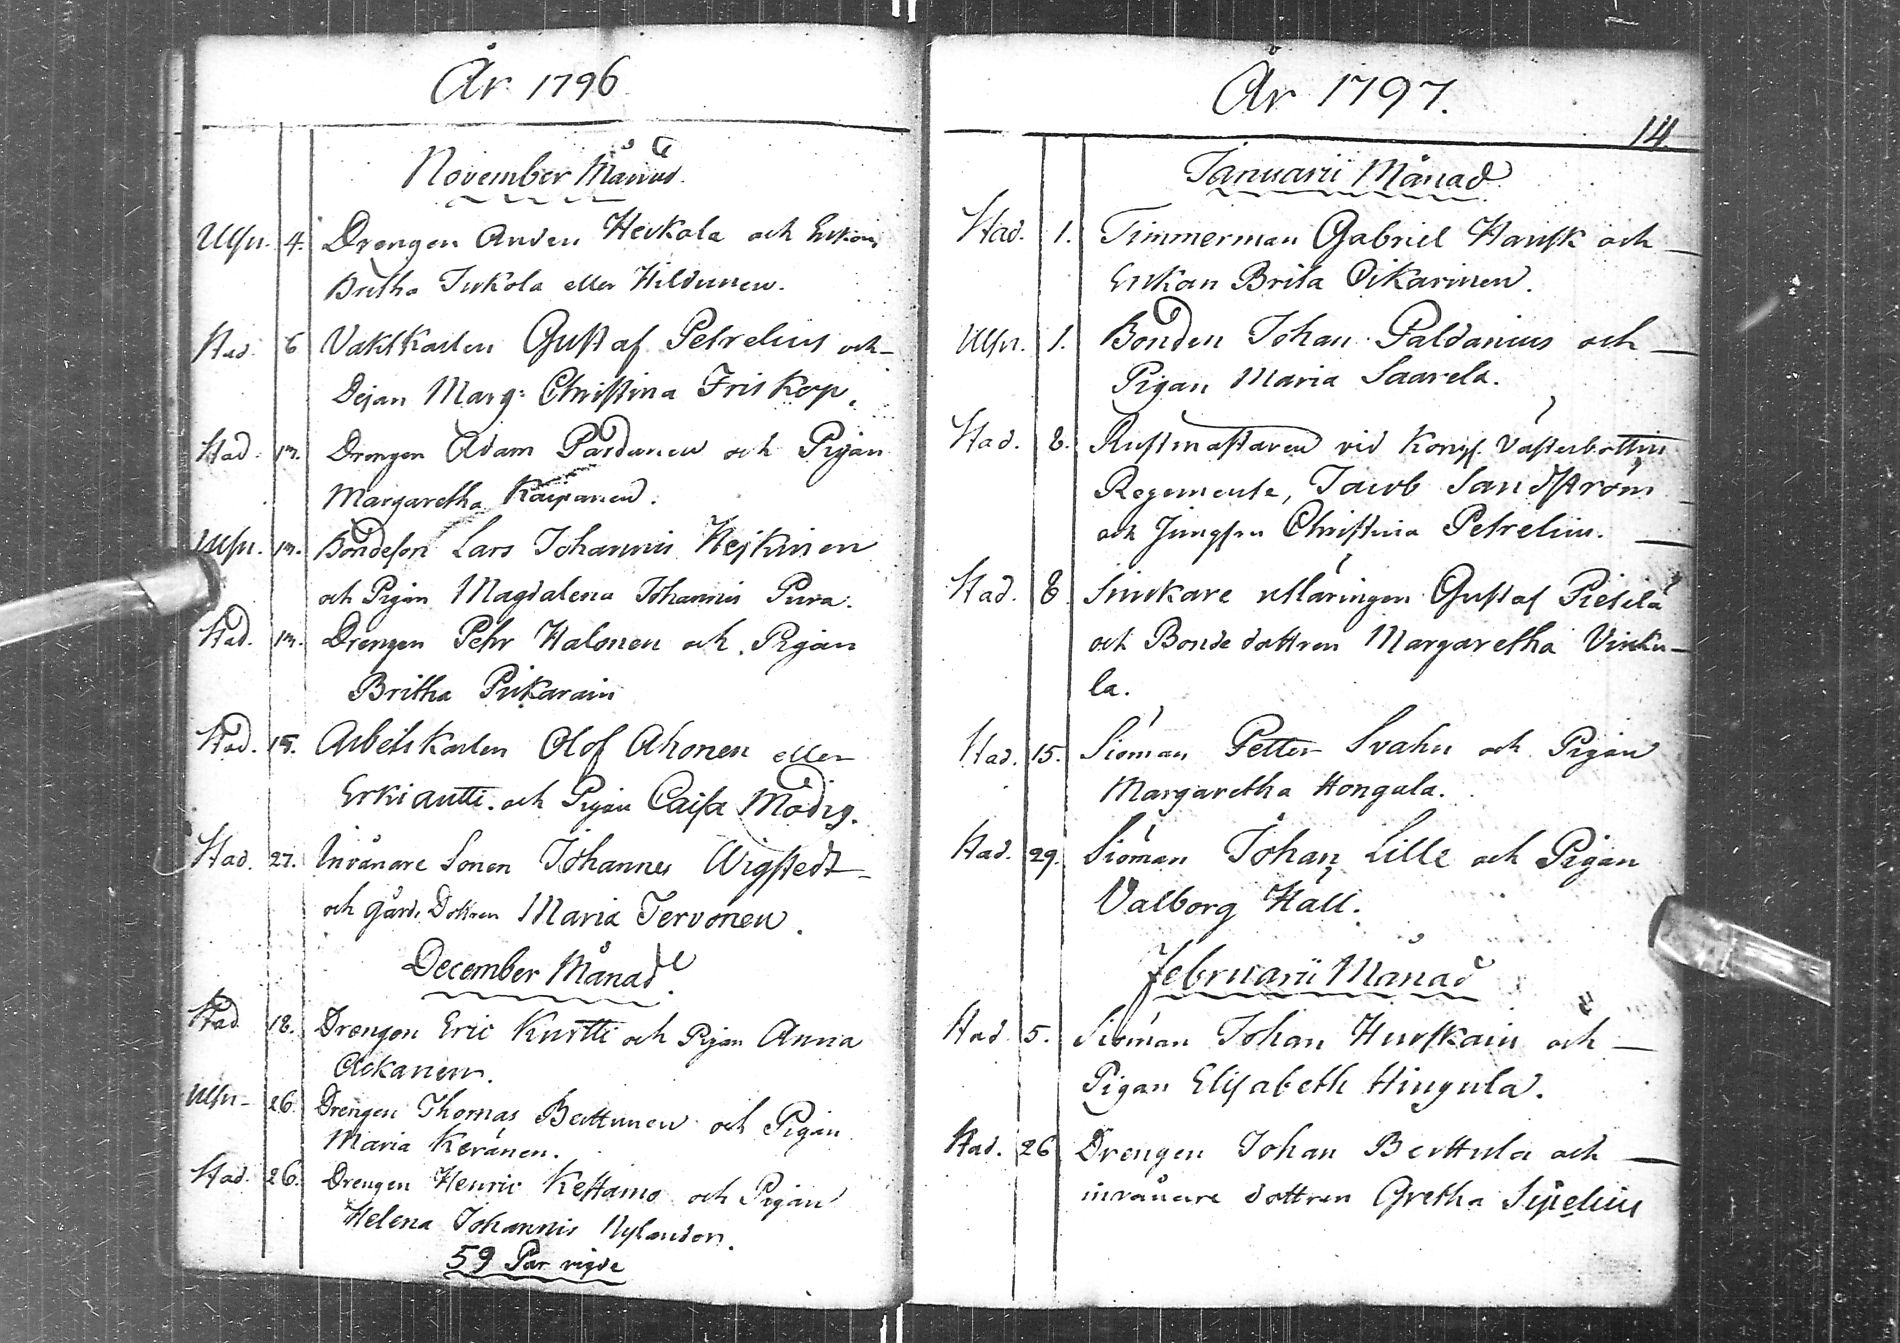 År 1796
November Månad
Ulfn. 4. Drengen Anders Heikola och Enkan
Britha Jukola eller Hildunen.
Stad. 6 Vaktkarlen Gustaf Petrelius och
Dejan Marg: Christina Friskop.
Stad. 13. Drengen Adam Pardanen och Pigan
Margaretha Karpanen.
Ulfn. 13. Bondeson Lars Johannis Hejkinen
och Pigan Magdalena Johannis Pura.
Stad. 13. Drengen Pehr Halonen och Pigan
Britha Pikarain
Stad. 15. Arbets karlen Olof Ahonen eller
Erkiantti. och Pigan Caisa Modig.
Stad. 27. Invånare Sonen Johannes Wigstedt
och Gårds Dottren Maria Tervonen.
December Månad.
Stad 18. Drengen Eric Kurtti och Pigan Anna
Ackanen.
Ulfn 26. Drengen Thomas Berttunen och Pigan
Maria Keränen.
Stad. 26. Drengen Henric Kettamo och Pigan
Helena Johannis Nylander.
59 Par vigde
År 1797.
14.
Januarii Månad
Stad. 1. Timmerman Gabriel Hansk och
Enkan Brita Pikarinen.
Ulfn. 1. Bonden Johan Paldanius och
Pigan Maria Saarela.
Stad. 8. Rustmästaren vid Kongl. Västerbottns
Regemente, Jacob Sandström
och Jungfru Christina Petrelius.
Stad. 8. Snickare utläringen Gustaf Pietilä
och Bonde dottren Margaretha
la.
Stad. 15. Siöman Petter Svahn och Pigan
Margaretha Hongula.
Stad. 29. Siöman Johan Lille och Pigan
Valborg Häll.
Februarii Månad
Stad. 5. Siöman Johan Hurskain och
Pigan Elisabeth Hingula.
Stad. 26 Drengen Johan Berttula och
invånare dottren Gretha Sipelius